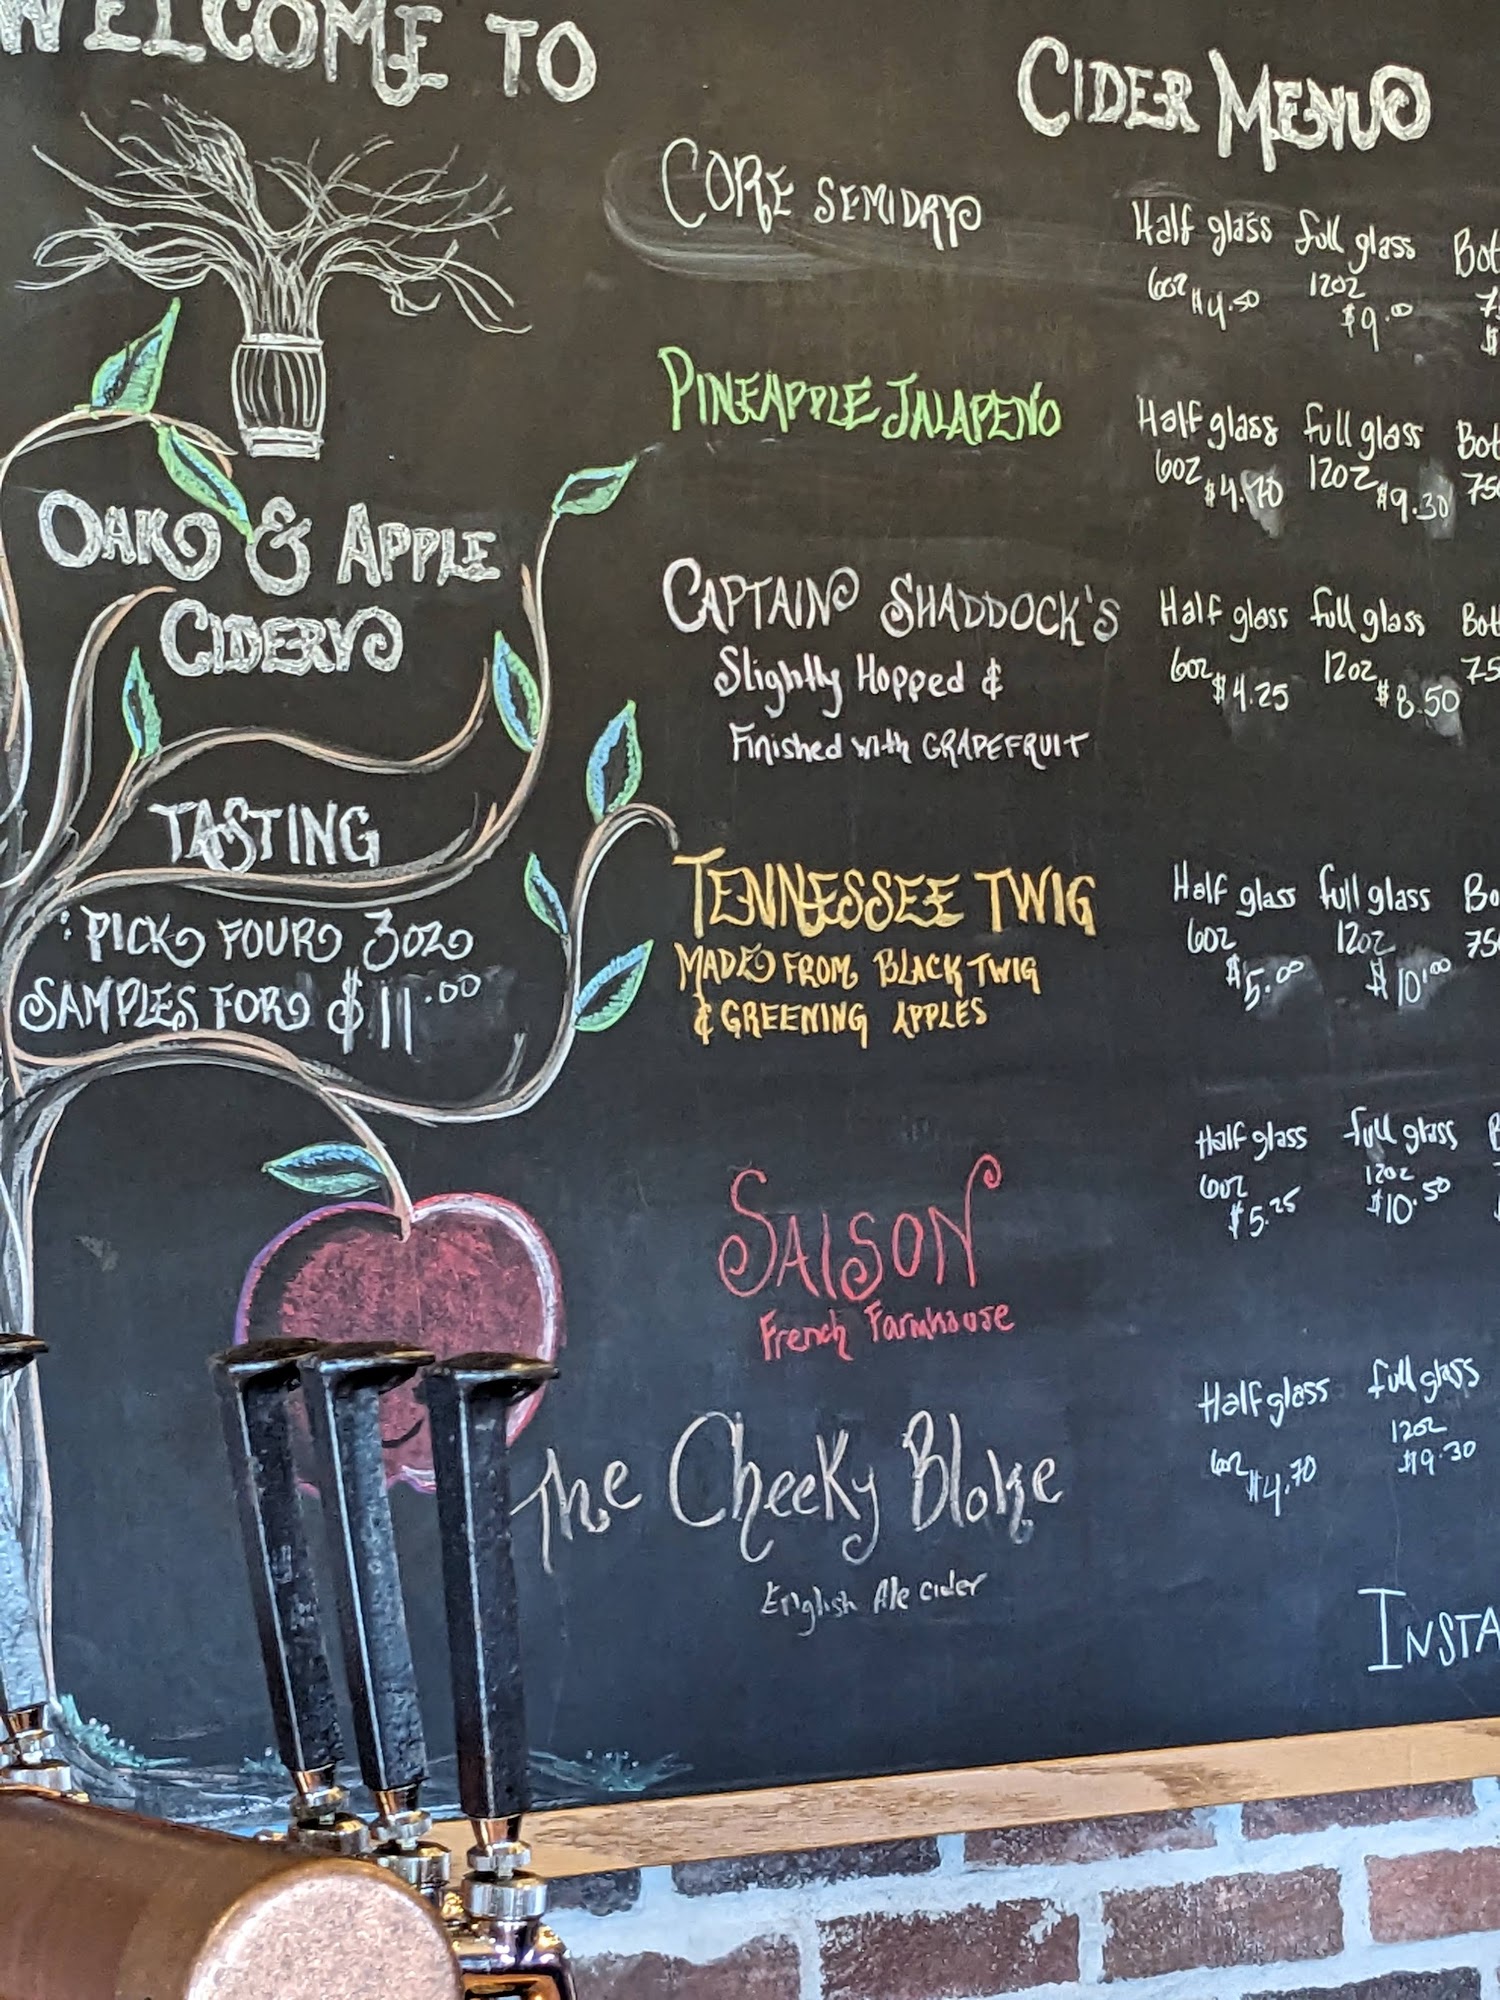 WELCOME TO
OAK & APPLE
CIDERY
TASTING
: PICK FOUR 3OZ
SAMPLES FOR $11.00
CIDER MENU
CORE SEMIDRY
Half glass full glass
6oz $4.50 12oz $9.00
PINEAPPLE JALAPEÑO
Half glass full glass
6oz $4.70 12oz $9.30
CAPTAIN SHADDOCK'S
Slightly Hopped &
Finished with GRAPEFRUIT
Half glass full glass
6oz $4.25 12oz $8.50
TENNESSEE TWIG
MADE FROM BLACK TWIG
& GREENING APPLES
Half glass full glass
6oz $5.00 12oz $10.00
SAISON
French Farmhouse
Half glass full glass
6oz $5.25 12oz $10.50
The Cheeky Bloke
English Ale cider
Half glass full glass
6oz $4.70 12oz $9.30
INSTA